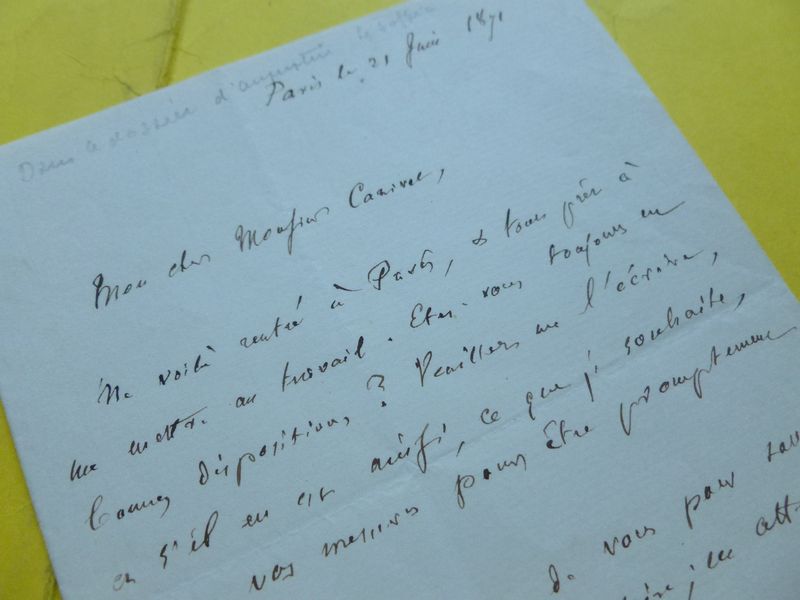 Dans le dossier d'augustin
Paris le 21 Juin 1871
Mon cher Monsieur Canivet,
Me voilà rentré à Paris, & tous prêt à
me mettre au travail. Etes-vous toujours en
bonnes dispositions ? Veuillez me l'écrire,
et s'il en est ainsi, ce que je souhaite,
vos mesures pour être promptement
de vous pour